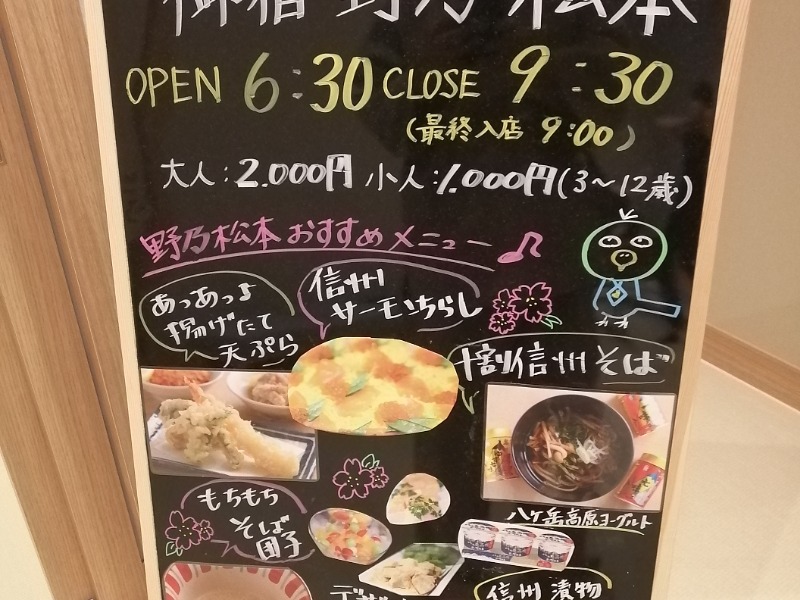 御宿 野乃 松本
OPEN 6:30 CLOSE 9:30
(最終入店 9:00)
大人:2.000円 小人:1.000円(3~12歳)
野乃松本おすすめメニュー♪
あっあっよ
揚げたて
天ぷら
信州
サーモンちらし
十割信州そば
もちもち
そば
団子
八ヶ岳高原ヨーグルト
信州 漬物